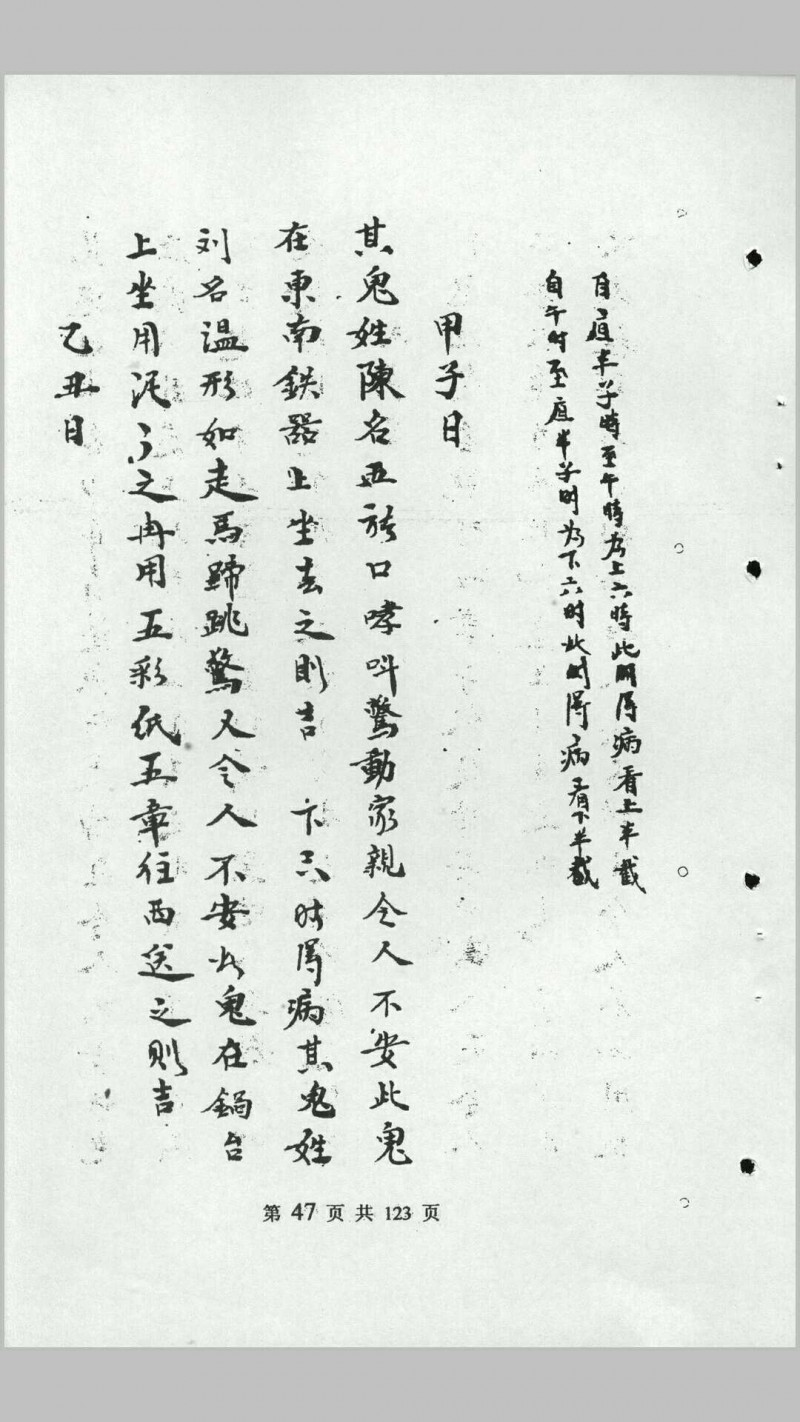 自夜半子時至午時为上六時此時得病看上半截
自午时至夜半子时为下六时此时得病看下半截
甲子日
其鬼姓陳名五 口哮叫驚動家親令人不安此鬼
在東南鉄器上坐去之則吉 下六时得病其鬼姓
刘名温形如走馬蹄跳驚又令人不安此鬼在鍋台
上坐用泥 之再用五彩紙五章往西送之则吉
乙丑日
第 47 页 共 123 页